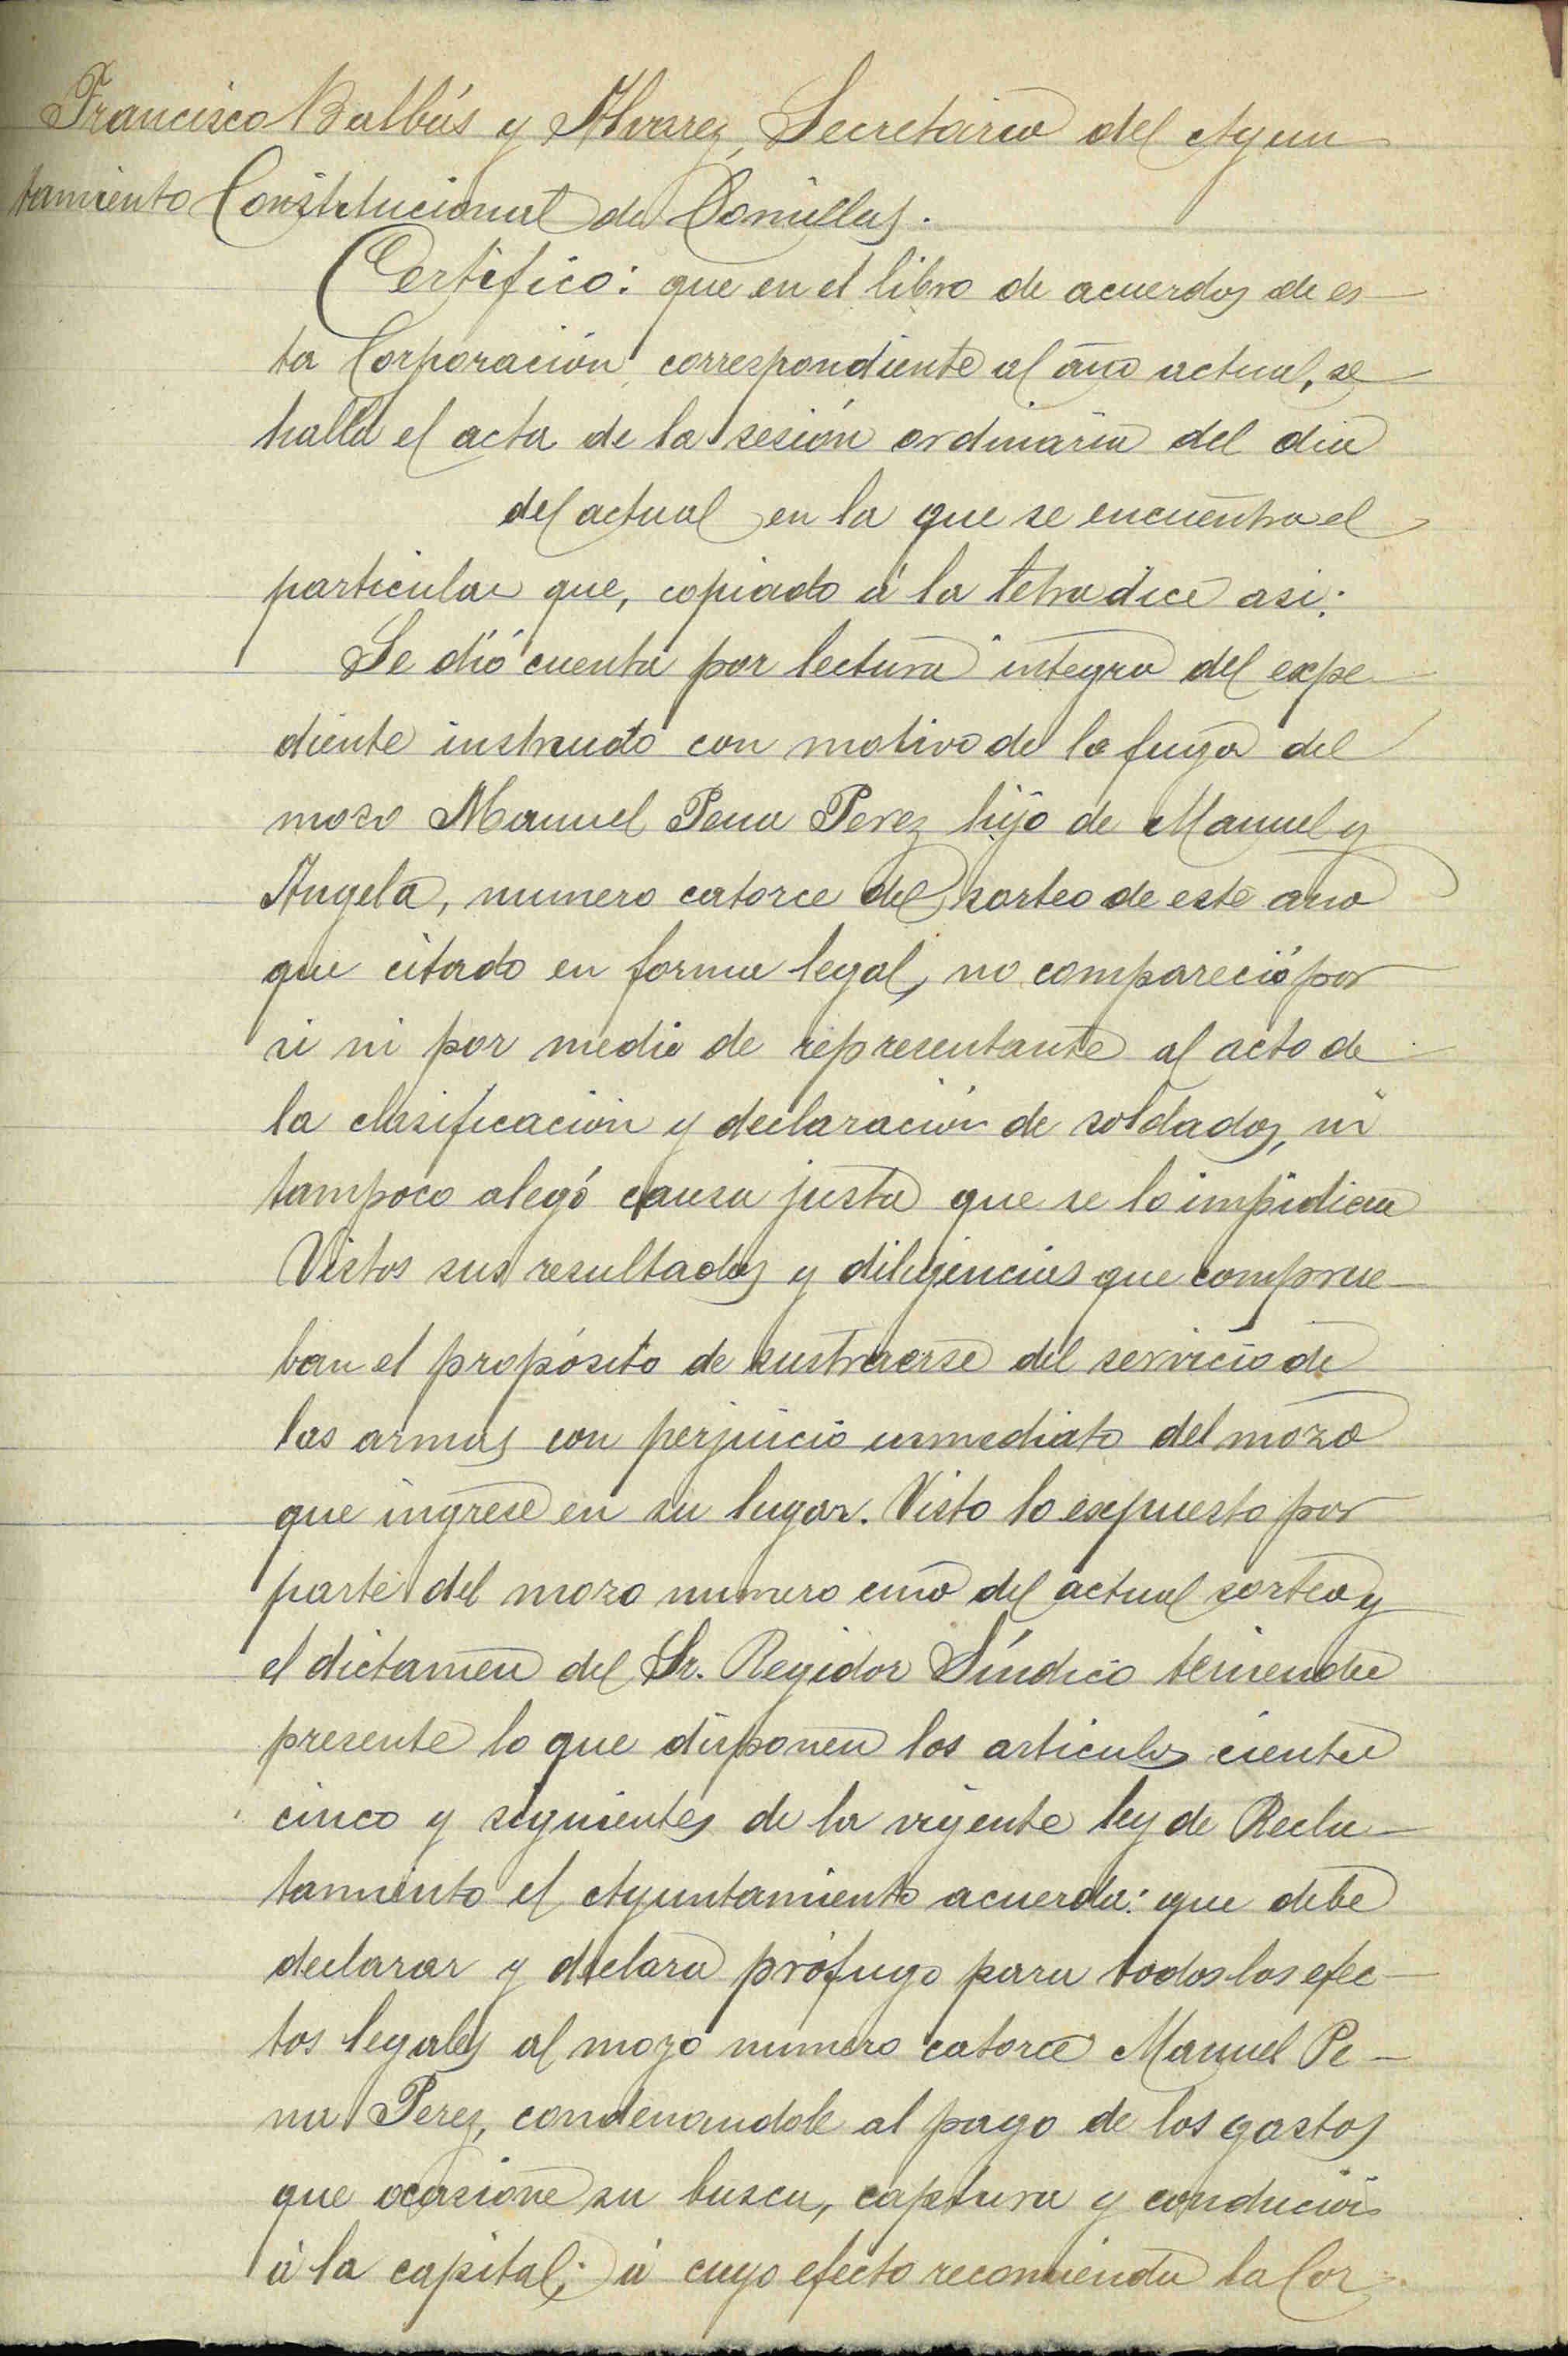 Francisco Balbás y Alvarez, Secretario del Ayun
tamiento Constitucional de Comillas.
Certifico: que en el libro de acuerdos de es-
ta Corporación correspondiente al año actual, se
halla el acta de la sesión ordinaria del dia
del actual en la que se encuentra el
particular que, copiado á la letra dice asi:
Se dió cuenta por lectura integra del expe-
diente instruido con motivo de la fuga del
mozo Manuel Pena Perez hijo de Manuel y
Angela, numero catorce del sorteo de este año
que citado en forma legal, no compareció por
si ni por medio de representante al acto de
la clasificación y declaración de soldados, ni
tampoco alegó causa justa que se lo impidiera
Vistos sus resultados y diligencias que comprue-
ban el propósito de sustraerse del servicio de
las armas con perjuicio inmediato del mozo
que ingrese en su lugar. Visto lo expuesto por
parte del mozo numero uno del actual sorteo y
el dictamen del Sr. Regidor Síndico teniendo
presente lo que disponen los articulos ciento
cinco y siguientes de la vigente ley de Reclu-
tamiento el Ayuntamiento acuerda: que debe
declarar y declara prófugo para todos los efec-
tos legales al mozo numero catorce Manuel Pe-
na Perez, condenandole al pago de los gastos
que ocasione su busca, captura y conducción
á la capital; á cuyo efecto recomienda la Cor